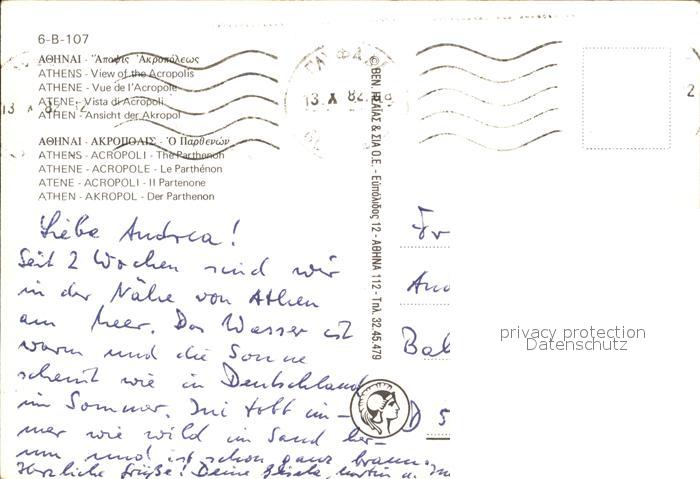 6-B-107
ΑΘΗΝΑΙ - Ἄποψις Ἀκροπόλεως
ATHENS - View of the Acropolis
ATHENE - Vue de l'Acropole
ATENE - Vista di Acropoli
ATHEN - Ansicht der Akropol
ΑΘΗΝΑΙ - ΑΚΡΟΠΟΛΙΣ - Ὁ Παρθενών
ATHENS - ACROPOLI - The Parthenon
ATHENE - ACROPOLE - Le Parthénon
ATENE - ACROPOLI - Il Partenone
ATHEN - AKROPOL - Der Parthenon
13 X 82
Liebe Andrea!
Seit 2 Wochen sind wir
in der Nähe von Athen
am Meer. Das Wasser ist
warm und die Sonne
scheint wie in Deutschland
im Sommer. Ini tobt im-
mer wie wild im Sand her-
um und ist schon ganz braun.
Herzliche Grüße! Deine Gisela, Martin u.
13. X 82
ΣΙΑ Ο.Ε. - Εὐπόλιδος 12 - ΑΘΗΝΑ 112 - Τηλ. 32.45.479
Fr
And
Bal
D 5
privacy protection
Datenschutz